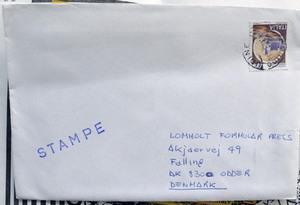 ITALIA
STAMPE
LOMHOLT FORMULAR PRESS
Akjaervej 49
Falling
DK 8300 ODDER
DENMARK